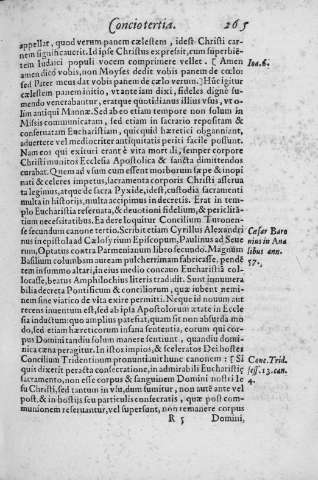 Concio tertia. 265
appellat, quod verum panem cælestem, idest Christi car-
nem significauerit. Id ipse Christus expressit, cum superbiē-
tem Iudaici populi vocem comprimere vellet. [Amen Ioa. 6.
amen dico vobis, non Moyses dedit vobis panem de cœlo
sed Pater meus dat vobis panem de cælo verum.] Hūc igitur
cælestem panem initio, vt ante iam dixi, fideles digne su-
mendo venerabantur, eratque quotidianus illius vsus, vt o-
lim antiqui Manna. Sed ab eo etiam tempore non solum in
Missis communicatam, sed etiam in sacrario repositam &
conseruatam Eucharistiam, quicquid hæretici obganniant,
aduertere vel mediocriter antiquitatis periti facile possunt.
Nam eos qui exituri erant è vita morbi, semper corpore
Christi munitos Ecclesia Apostolica & sancta dimittendos
curabat. Quem ad vsum cum essent morborum sæpe & inopi
nati & celeres impetus, sacramenta corporis Christi asserua
ta legimus, atque de sacra Pyxide, idest, custodia sacramenti
multa in historijs, multa accipimus in decretis. Erat in tem-
plo Eucharistia reseruata, & deuotioni fidelium, & periclitā-
tium necessitatibus. Ea de re loquitur Concilium Turonen-
se secundum canone tertio. Scribit etiam Cyrillus Alexandri Cæsar Baro
nus in epistola ad Calosyrium Episcopum, Paulinus ad Seue nius in Ana
rum, Optatus contra Parmenianum libro secundo. Magnum libus ann.
Basilium columbam auream pulcherrimam fabricasse, pendē 57.
tem in summo altari, in eius medio concauo Eucharistiā col-
locasse, beatus Amphilochius literis tradidit. Sunt innumera
bilia decreta Pontificum & conciliorum, quæ iubent nemi-
nem sine viatico de vita exire permitti. Neque id nouum aut
recens inuentum est, sed ab ipsa Apostolorum ætate in Eccle
sia inductum: quo amplius patefiat, quam sit non absurda mo
do, sed etiam hæreticorum insana sententia, eorum qui cor-
pus Domini tandiu solum manere sentiunt, quandiu domi-
nica cœna peragitur. In istos impios, & sceleratos Dei hostes
Concilium Tridentinum pronuntiauit hunc canonem: [Si Conc. Trid.
quis dixerit peracta consecratione, in admirabili Eucharistię sess. 13. can.
sacramento, non esse corpus & sanguinem Domini nostri Ie 4.
su Christi, sed tantum in vsu, dum sumitur, non autē ante vel
post, & in hostijs seu particulis consecratis, quæ post com-
munionem reseruantur, vel supersunt, non remanere corpus
R 5 Domini,